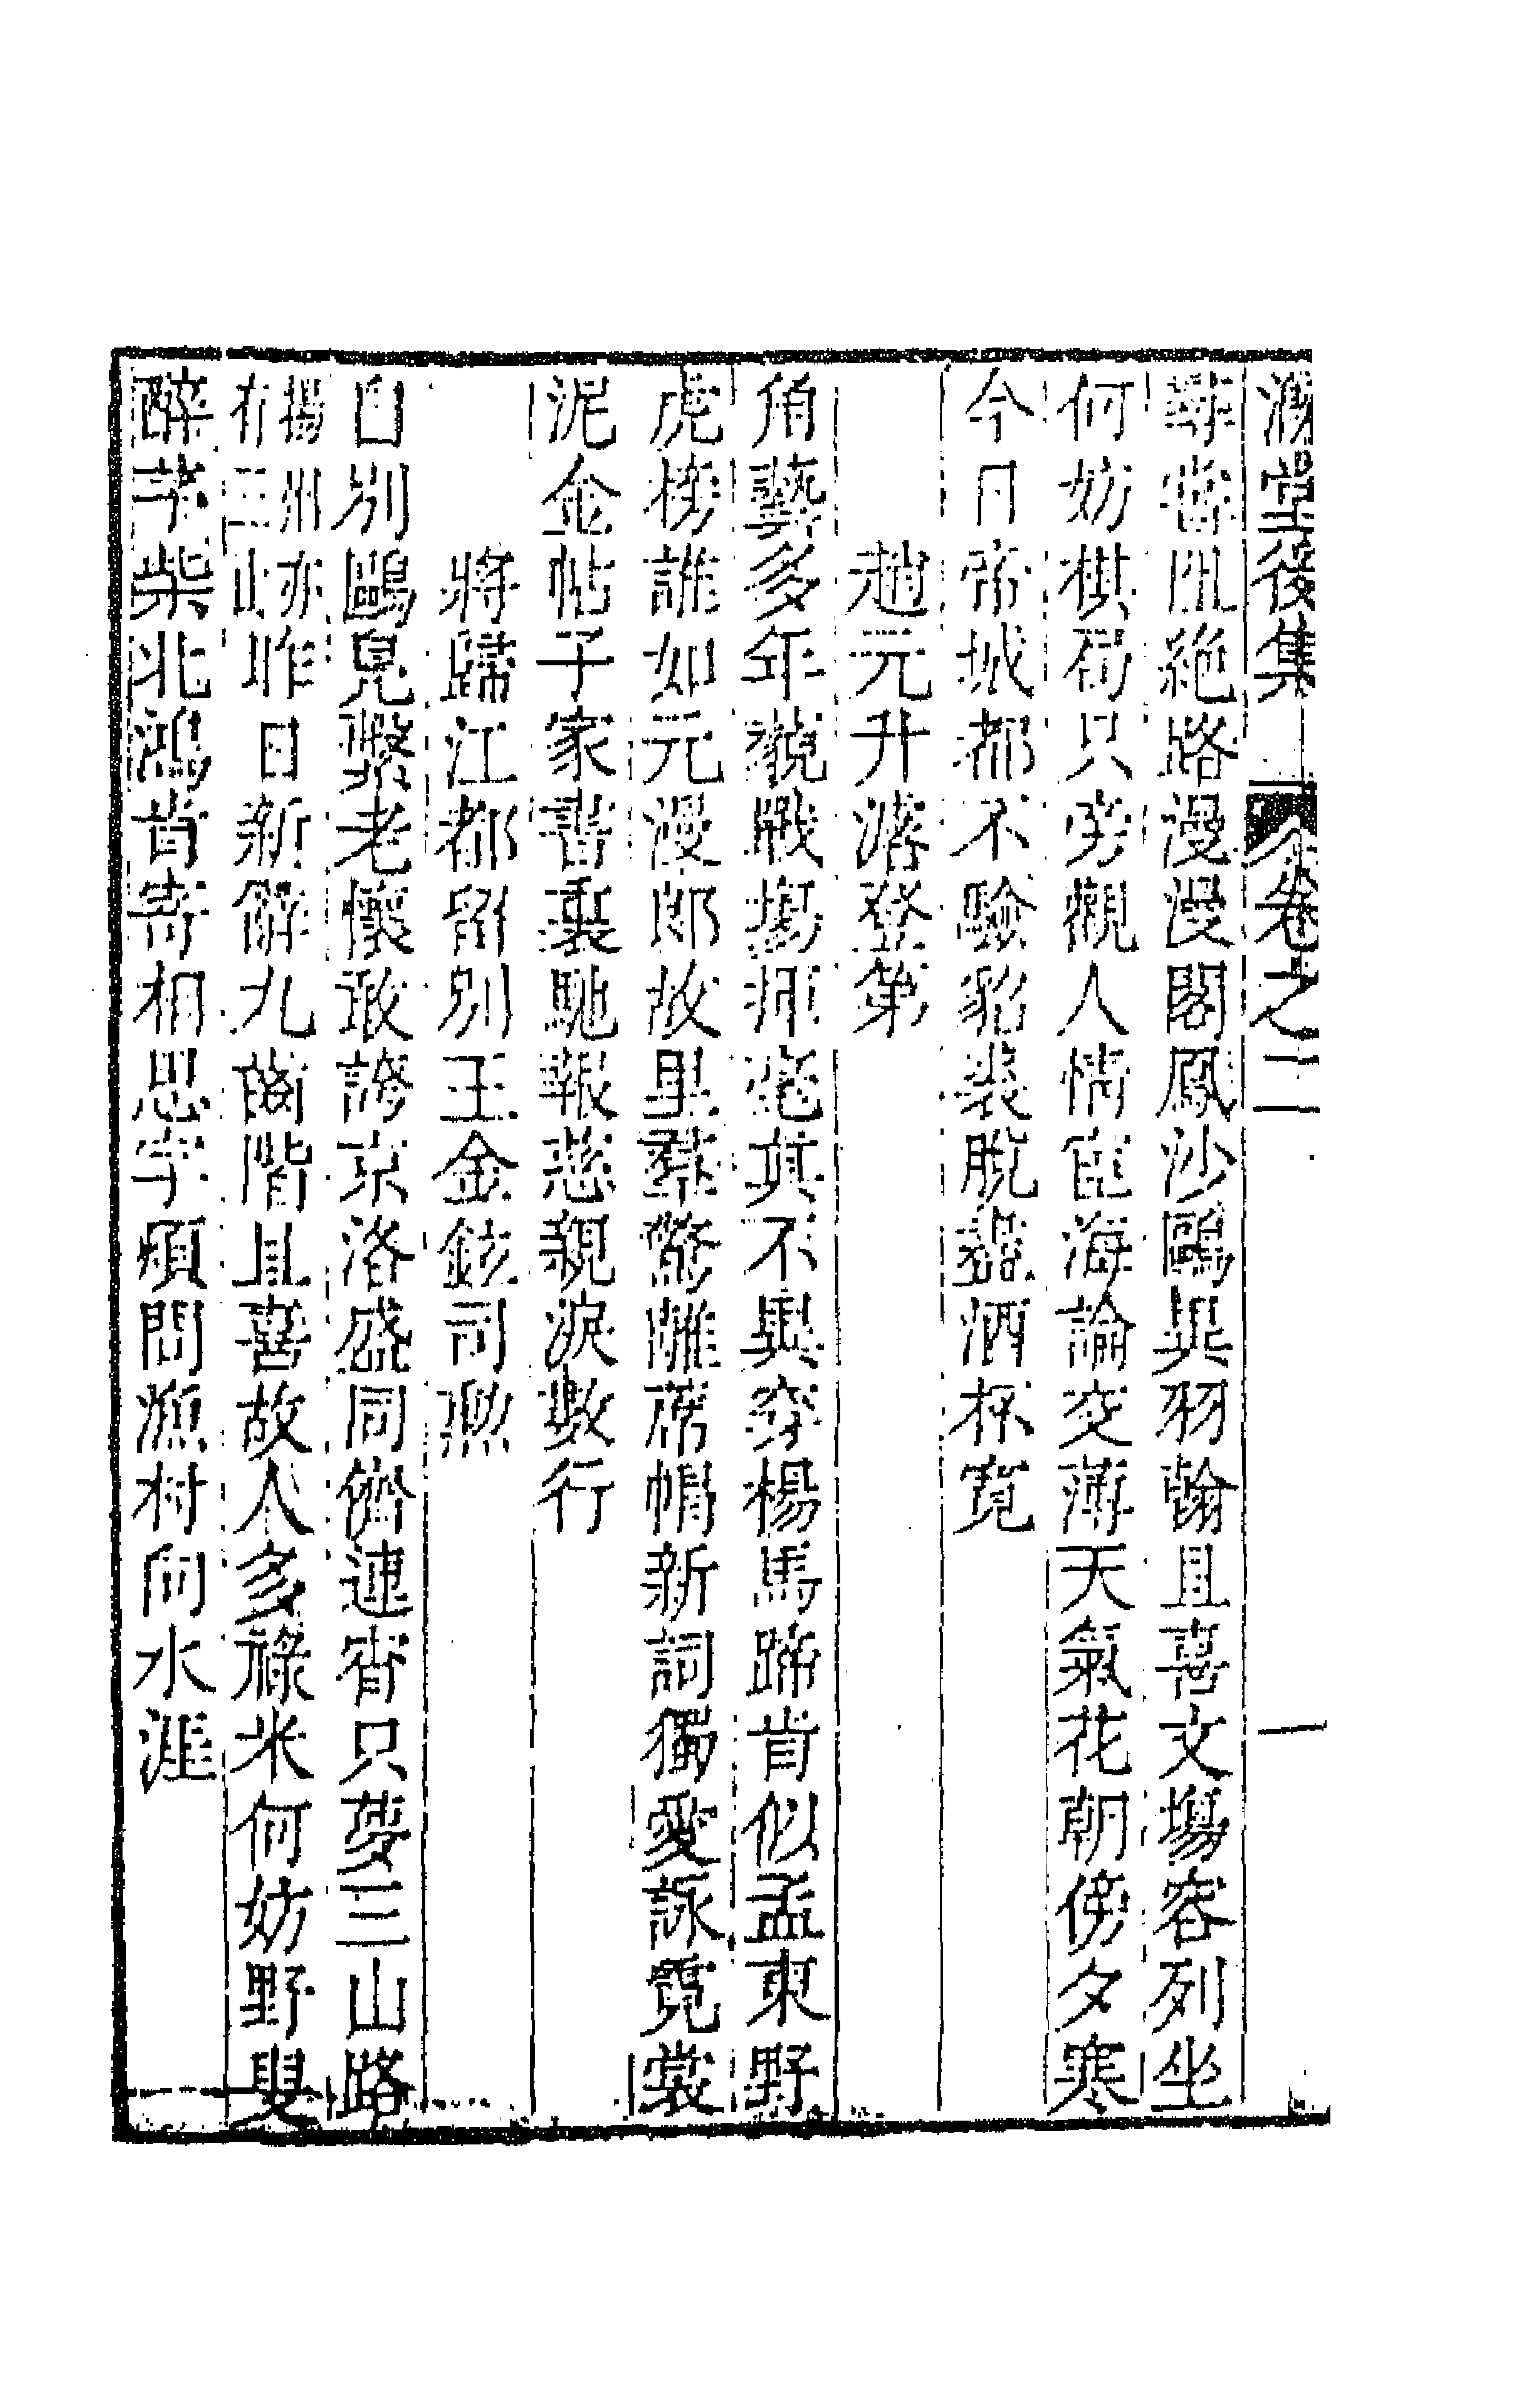 溉堂後集 卷之二 一
尋嘗阻絕路漫漫閣鳳沙鷗與羽翰且喜文塲容列坐
何妨棋局只旁觀人情宦海論交薄天氣花朝傍夕寒
今日帝城都不驗貂裘脫酒杯寬
趙元升濬登第
角藝多年藐戰塲揮毫真不異穿楊馬蹄肯似孟東野
虎榜誰如元漫郎故里羣驚離蓆帽新詞獨愛詠霓裳
泥金帖子家書裏馳報慈親淚數行
將歸江都留別王金鉉司勲
自別鷗鳧繫老懷敢誇京洛盛同儕連宵只夢三山路
揚州亦有三山昨日新辭九齒階且喜故人多祿米何妨野叟
醉茅柴北鴻肯寄相思字煩問漁村向水涯